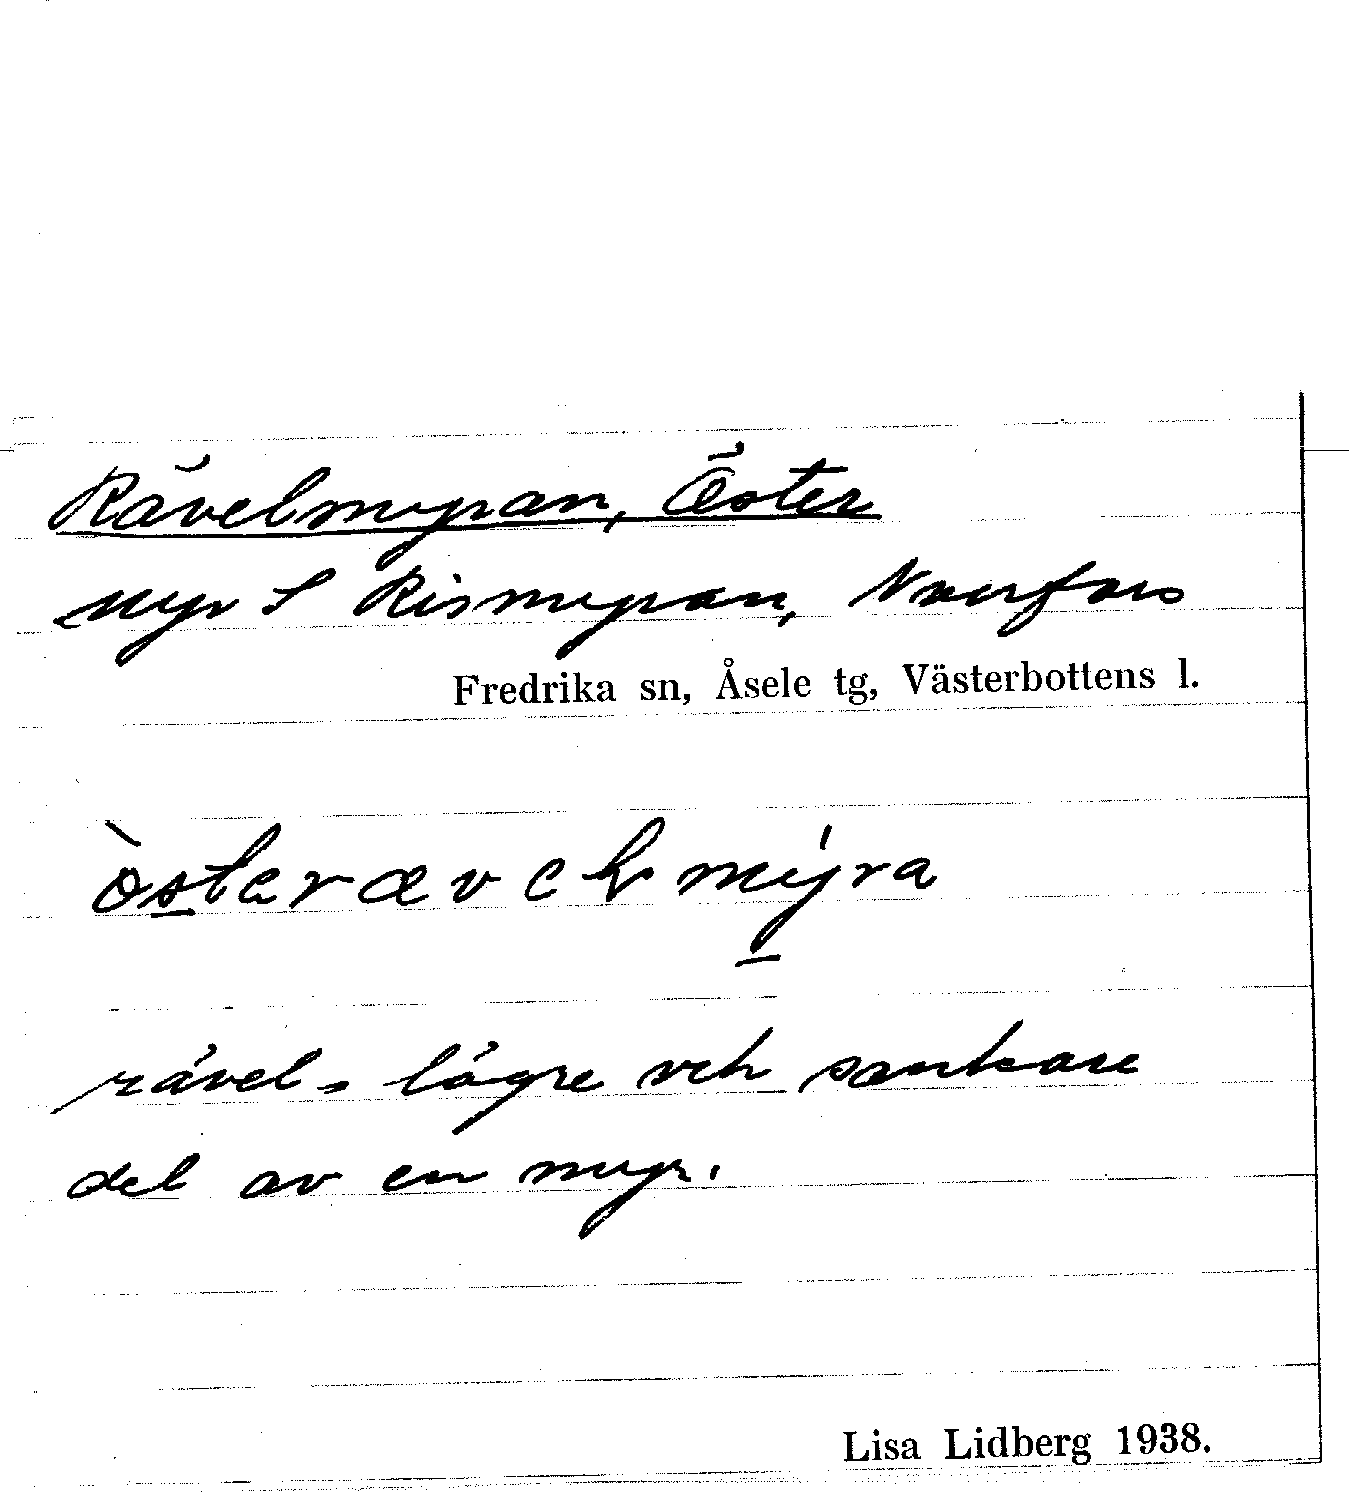 Rävelmyran, Öster
Myr S Rismyran, Norrfors
Fredrika sn, Åsele tg, Västerbottens l.
rävel = lägre och sankare
del av en myr.
Lisa Lidberg 1938.